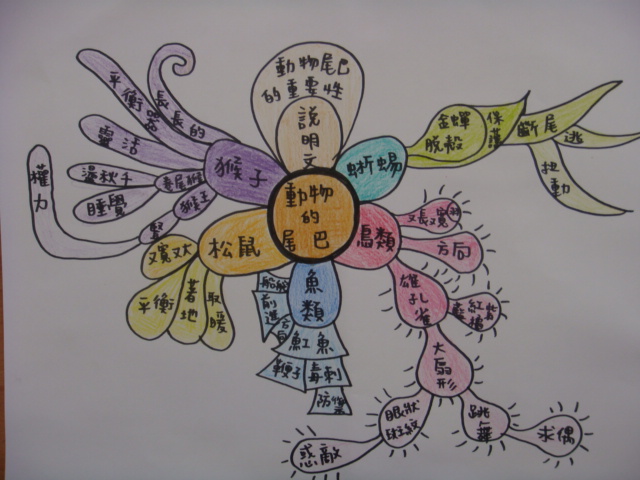 動物尾巴
的重要性
說
明
文
動物
的
尾巴
猴子
長長的
平衡器
靈活
捲尾猴
盪秋千
睡覺
猴王
豎
權力
松鼠
又寬又大
平衡
著地
取暖
魚類
船舶
前進
方向
魟魚
鞭子
毒刺
防禦
鳥類
又長又寬
方向
雄
孔
雀
大
扇
形
眼狀
斑紋
惑敵
跳
舞
求偶
蜥蜴
金蟬
脫殼
保護
斷尾
逃
扭
動